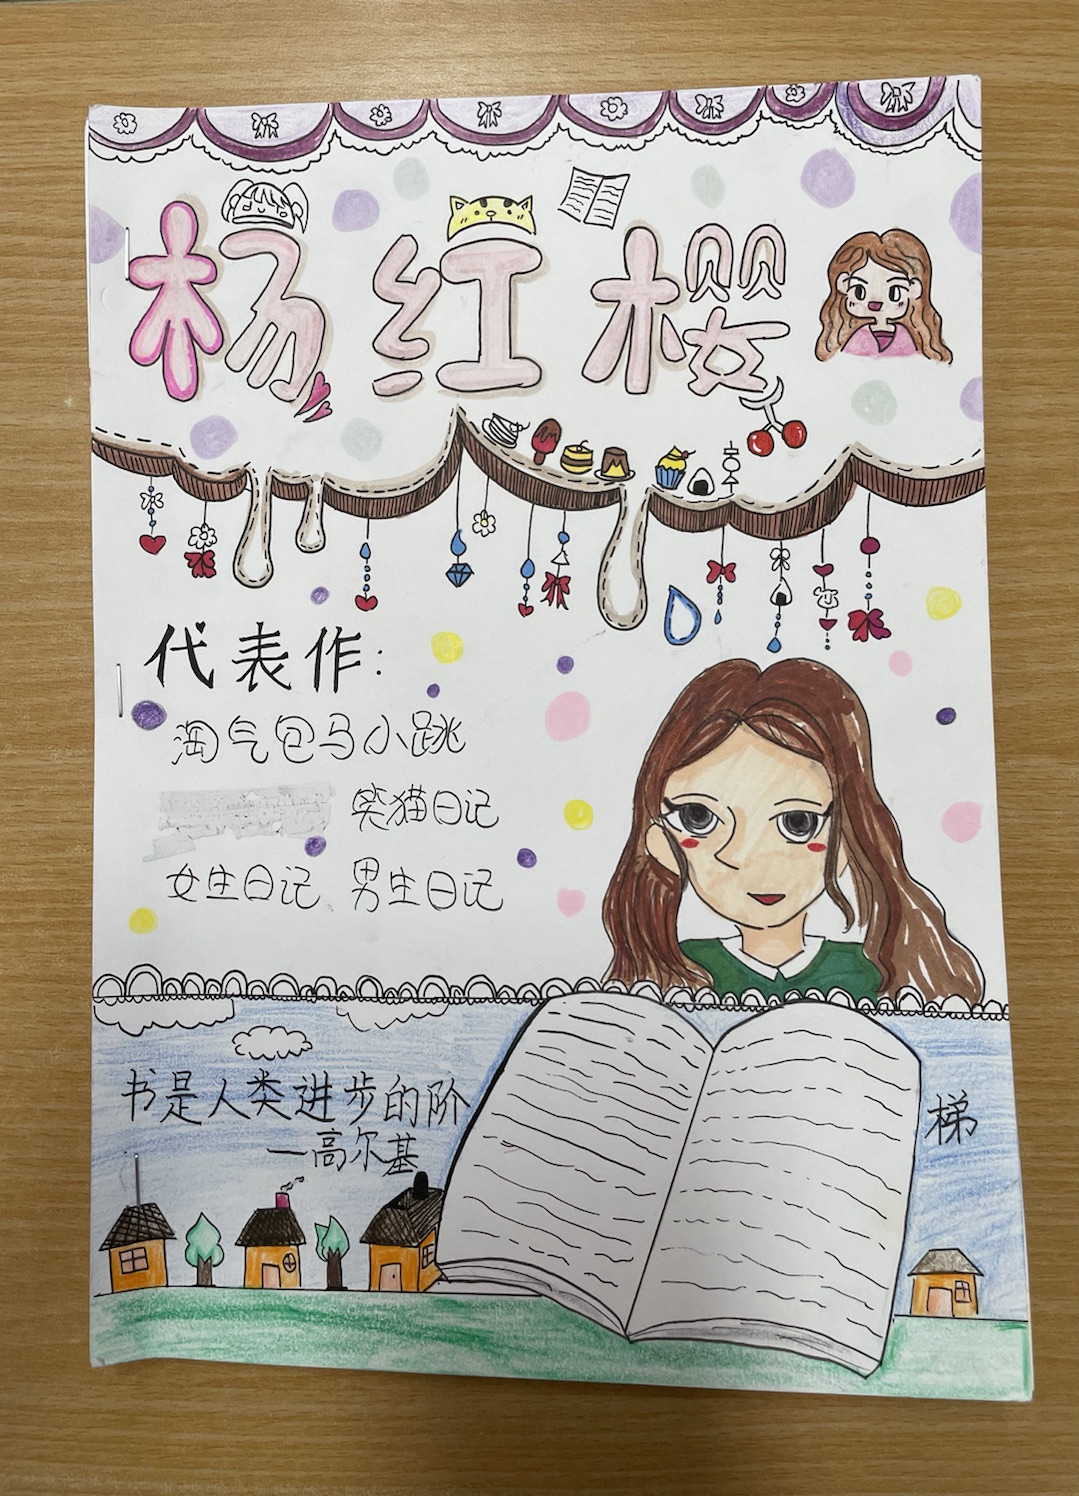 杨红樱
代表作:
淘气包马小跳
笑猫日记
女生日记 男生日记
书是人类进步的阶梯
—高尔基